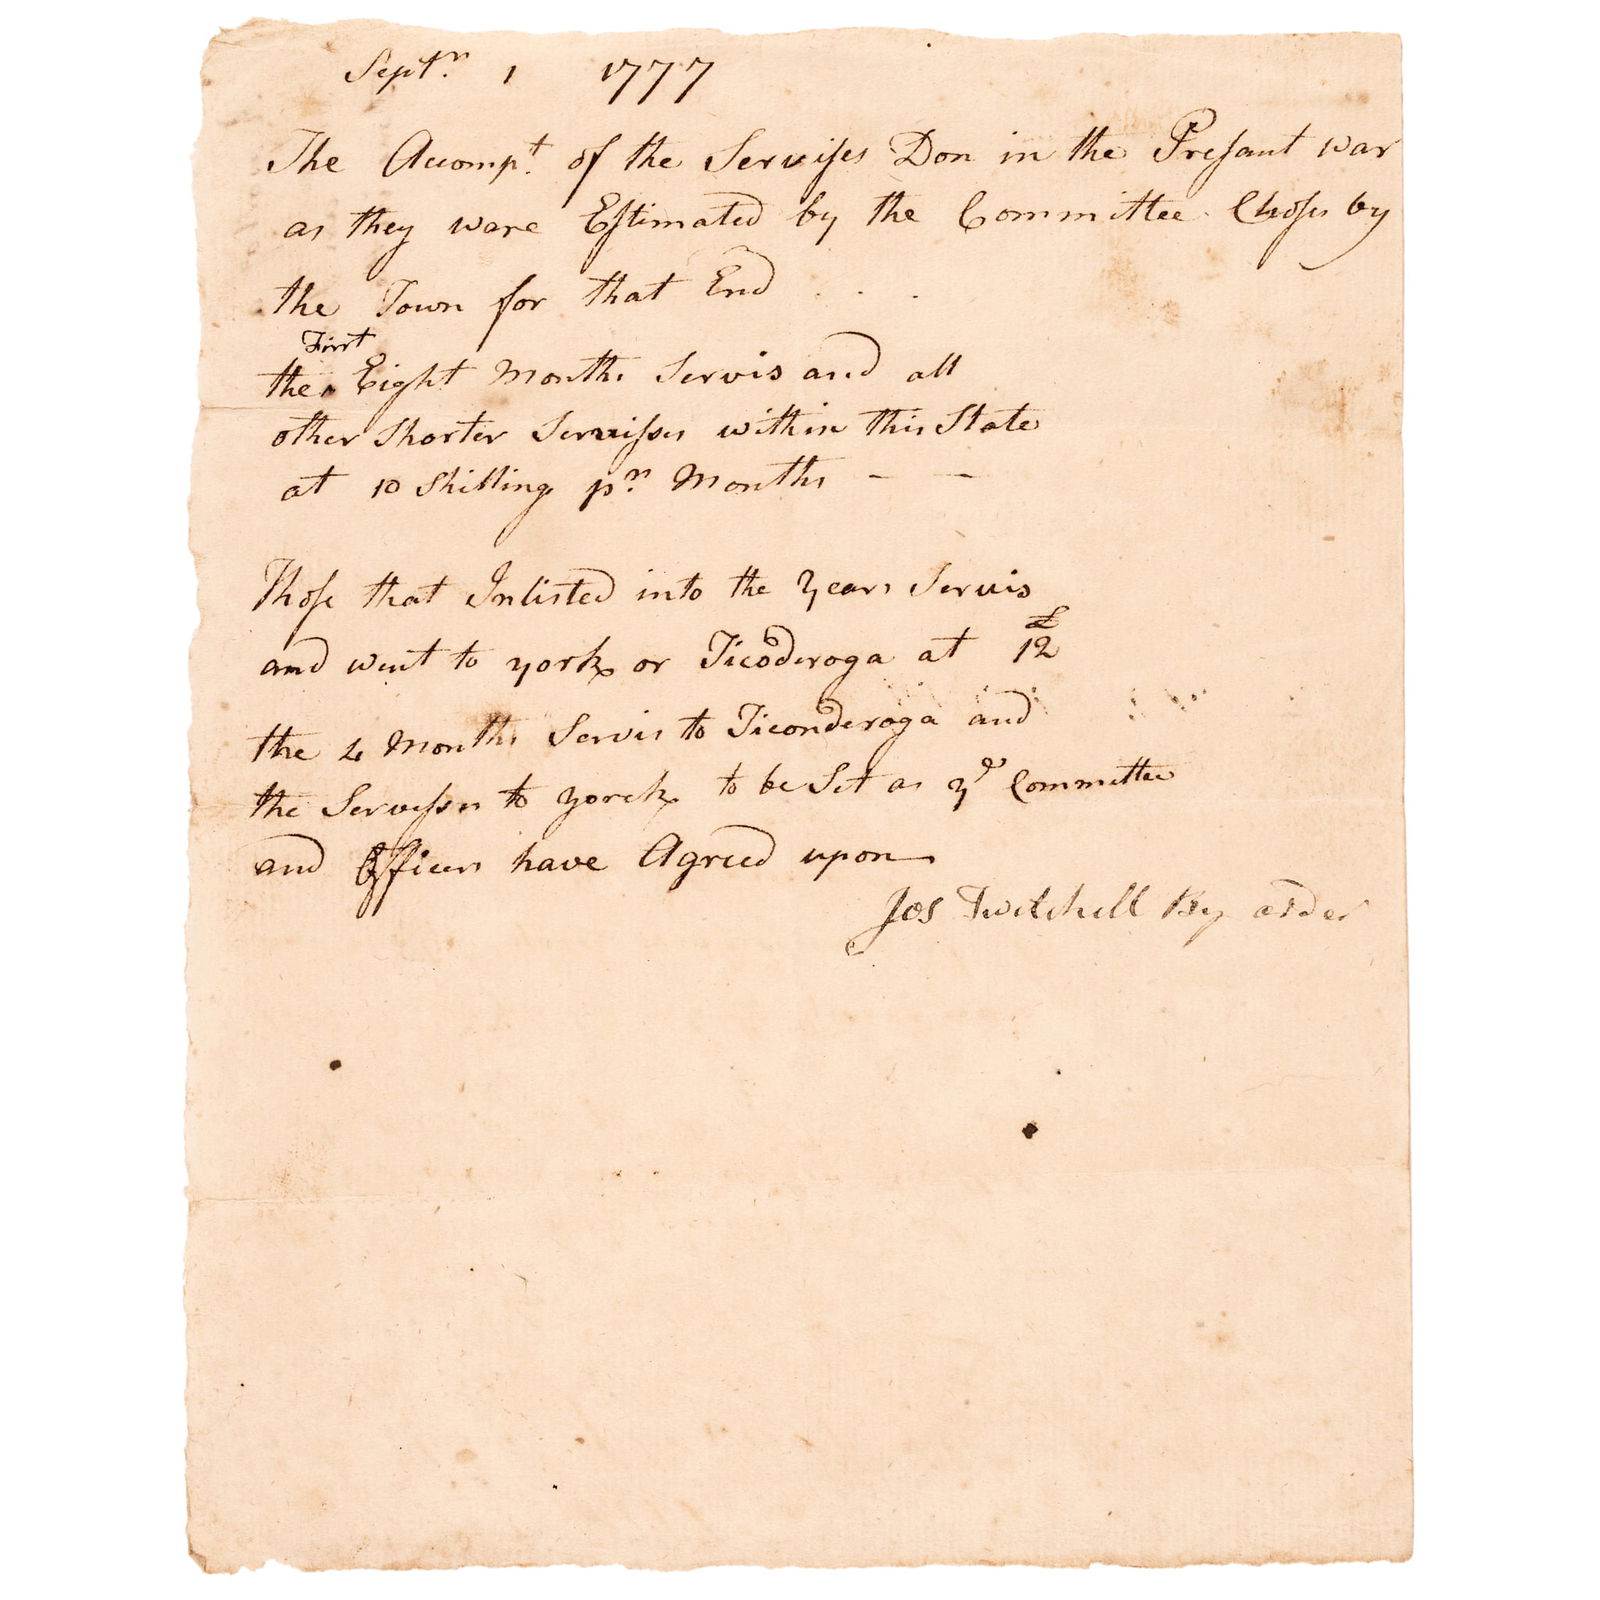 Septr. 1 1777
The Accompt. of the Serviſes Don in the Preſant war
as they ware Eſtimated by the Committee Choſen by
the Town for that End . . .
First
the Eight Months Servis and all
other Shorter Serviſses within this State
at 10 Shillings pr. Months - -
Thoſe that Inlisted into the Years Servis
£
and went to york or Ticoderoga at 12
the 4 Months Servis to Ticonderoga and
the Serveſses to yorck to be Set as ye Committee
and Officers have Agreed upon
Jos Twitchell By order